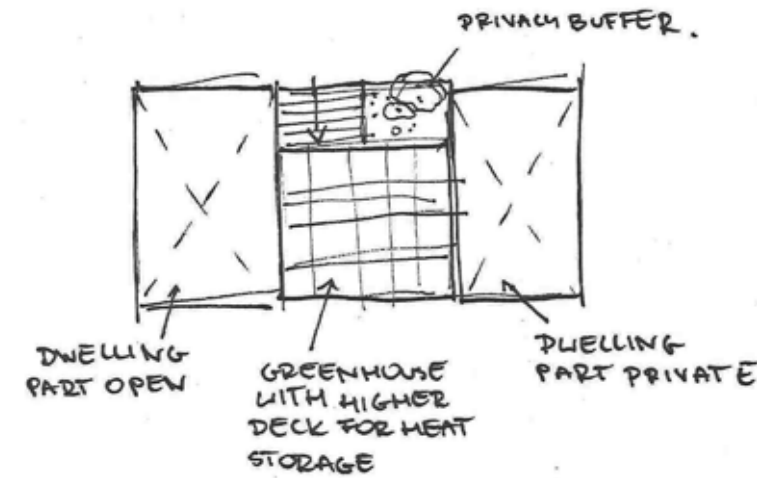 PRIVACY BUFFER.
DWELLING
PART OPEN
GREENHOUSE
WITH HIGHER
DECK FOR HEAT
STORAGE
DWELLING
PART PRIVATE